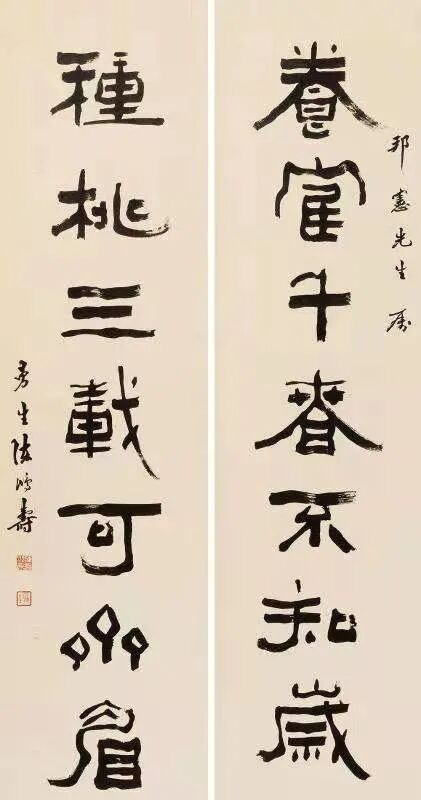 邦憲先生屬
養寉千春不知歲
種桃三載可齊眉
曼生陳鴻壽